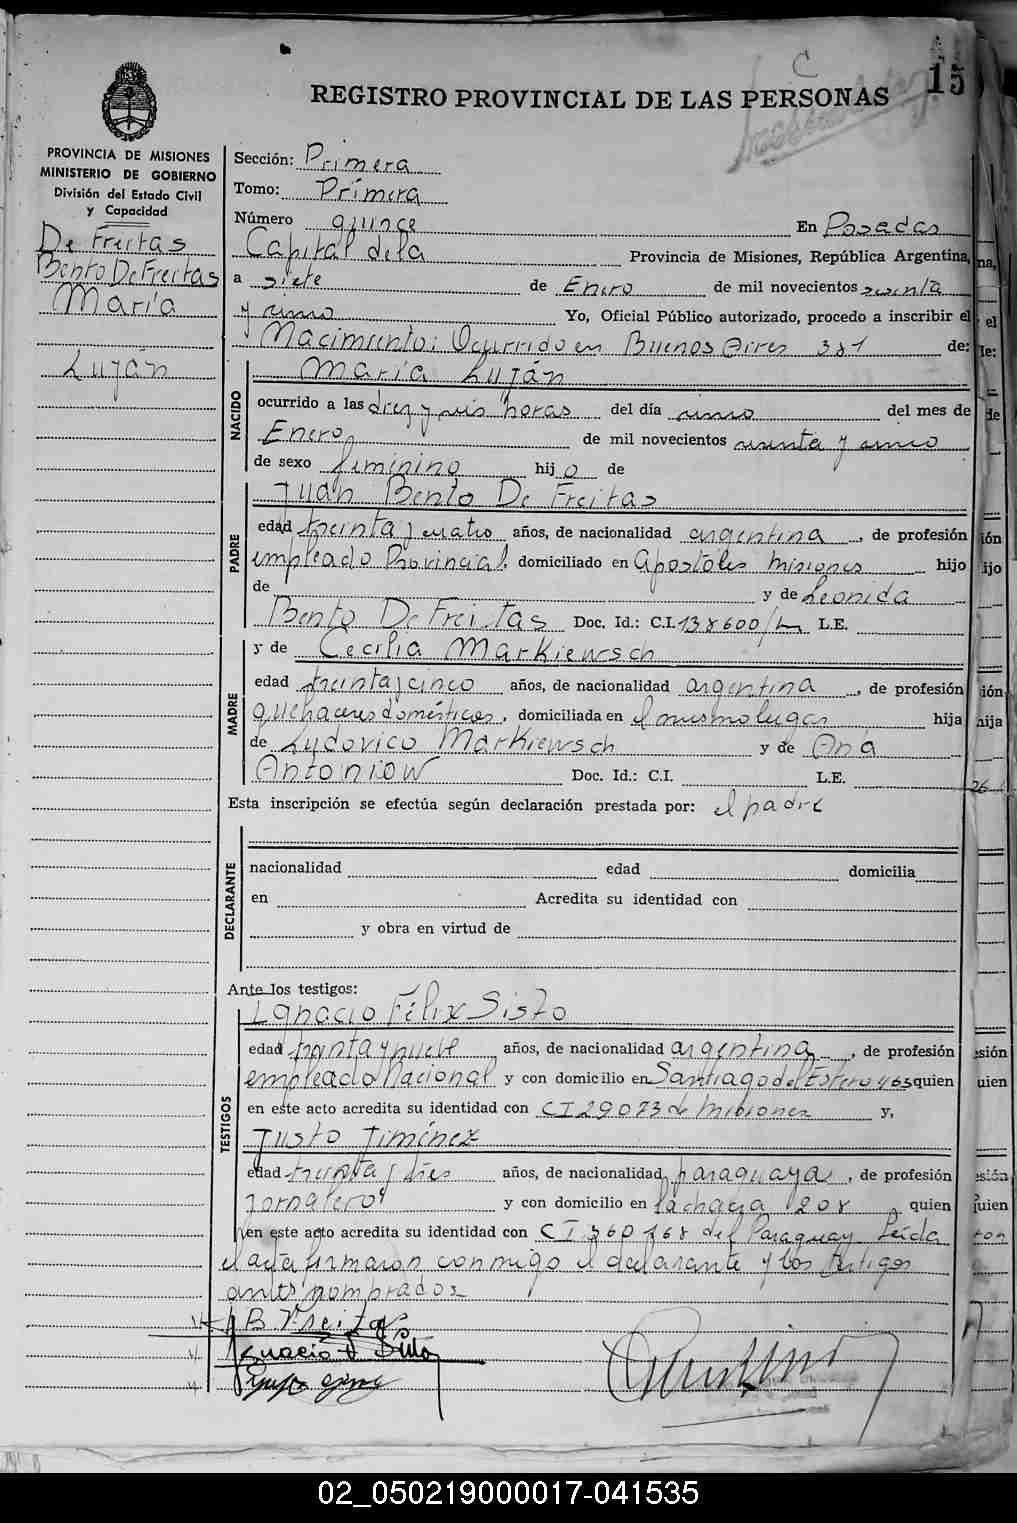 15
REGISTRO PROVINCIAL DE LAS PERSONAS
PROVINCIA DE MISIONES
MINISTERIO DE GOBIERNO
División del Estado Civil
y Capacidad
De Freitas
Bento De Freitas
María
Luján
Sección: Primera
Tomo: Primera
Número quince En Posadas
Capital de la Provincia de Misiones, República Argentina,
a siete de Enero de mil novecientos
y Yo, Oficial Público autorizado, procedo a inscribir el
Nacimiento: Ocurrido en Buenos Aires 381 de:
María Luján
NACIDO
ocurrido a las diez y seis horas del día uno del mes de
Enero de mil novecientos
de sexo feminino hij o de
PADRE
Juan Bento De Freitas
edad treinta y cuatro años, de nacionalidad argentina, de profesión
empleado Provincial, domiciliado en Apostoles Misiones hijo
de y de Leonida
Bento De Freitas Doc. Id.: C.I. 138600/ L.E.
y de Cecilia Markiewsch
MADRE
edad treinta y cinco años, de nacionalidad argentina, de profesión
quehaceres domésticos, domiciliada en el mismo lugar hija
de Lydovico Markiewsch y de Ana
Antoniow Doc. Id.: C.I. L.E.
Esta inscripción se efectúa según declaración prestada por: el padre
DECLARANTE
nacionalidad edad domicilia
en Acredita su identidad con
y obra en virtud de
Ante los testigos:
TESTIGOS
Ignacio Félix Sisto
edad treinta y nueve años, de nacionalidad argentina, de profesión
empleado Nacional y con domicilio en Santiago del Estero 463 quien
en este acto acredita su identidad con CI 29073 de Misiones y,
Justo Jiménez
edad treinta y tres años, de nacionalidad paraguaya, de profesión
jornalero y con domicilio en La chacra 208 quien
en este acto acredita su identidad con CI 360168 del Paraguay Leida
el acta firmaron conmigo el declarante y los testigos
antes nombrados
02_050219000017-041535